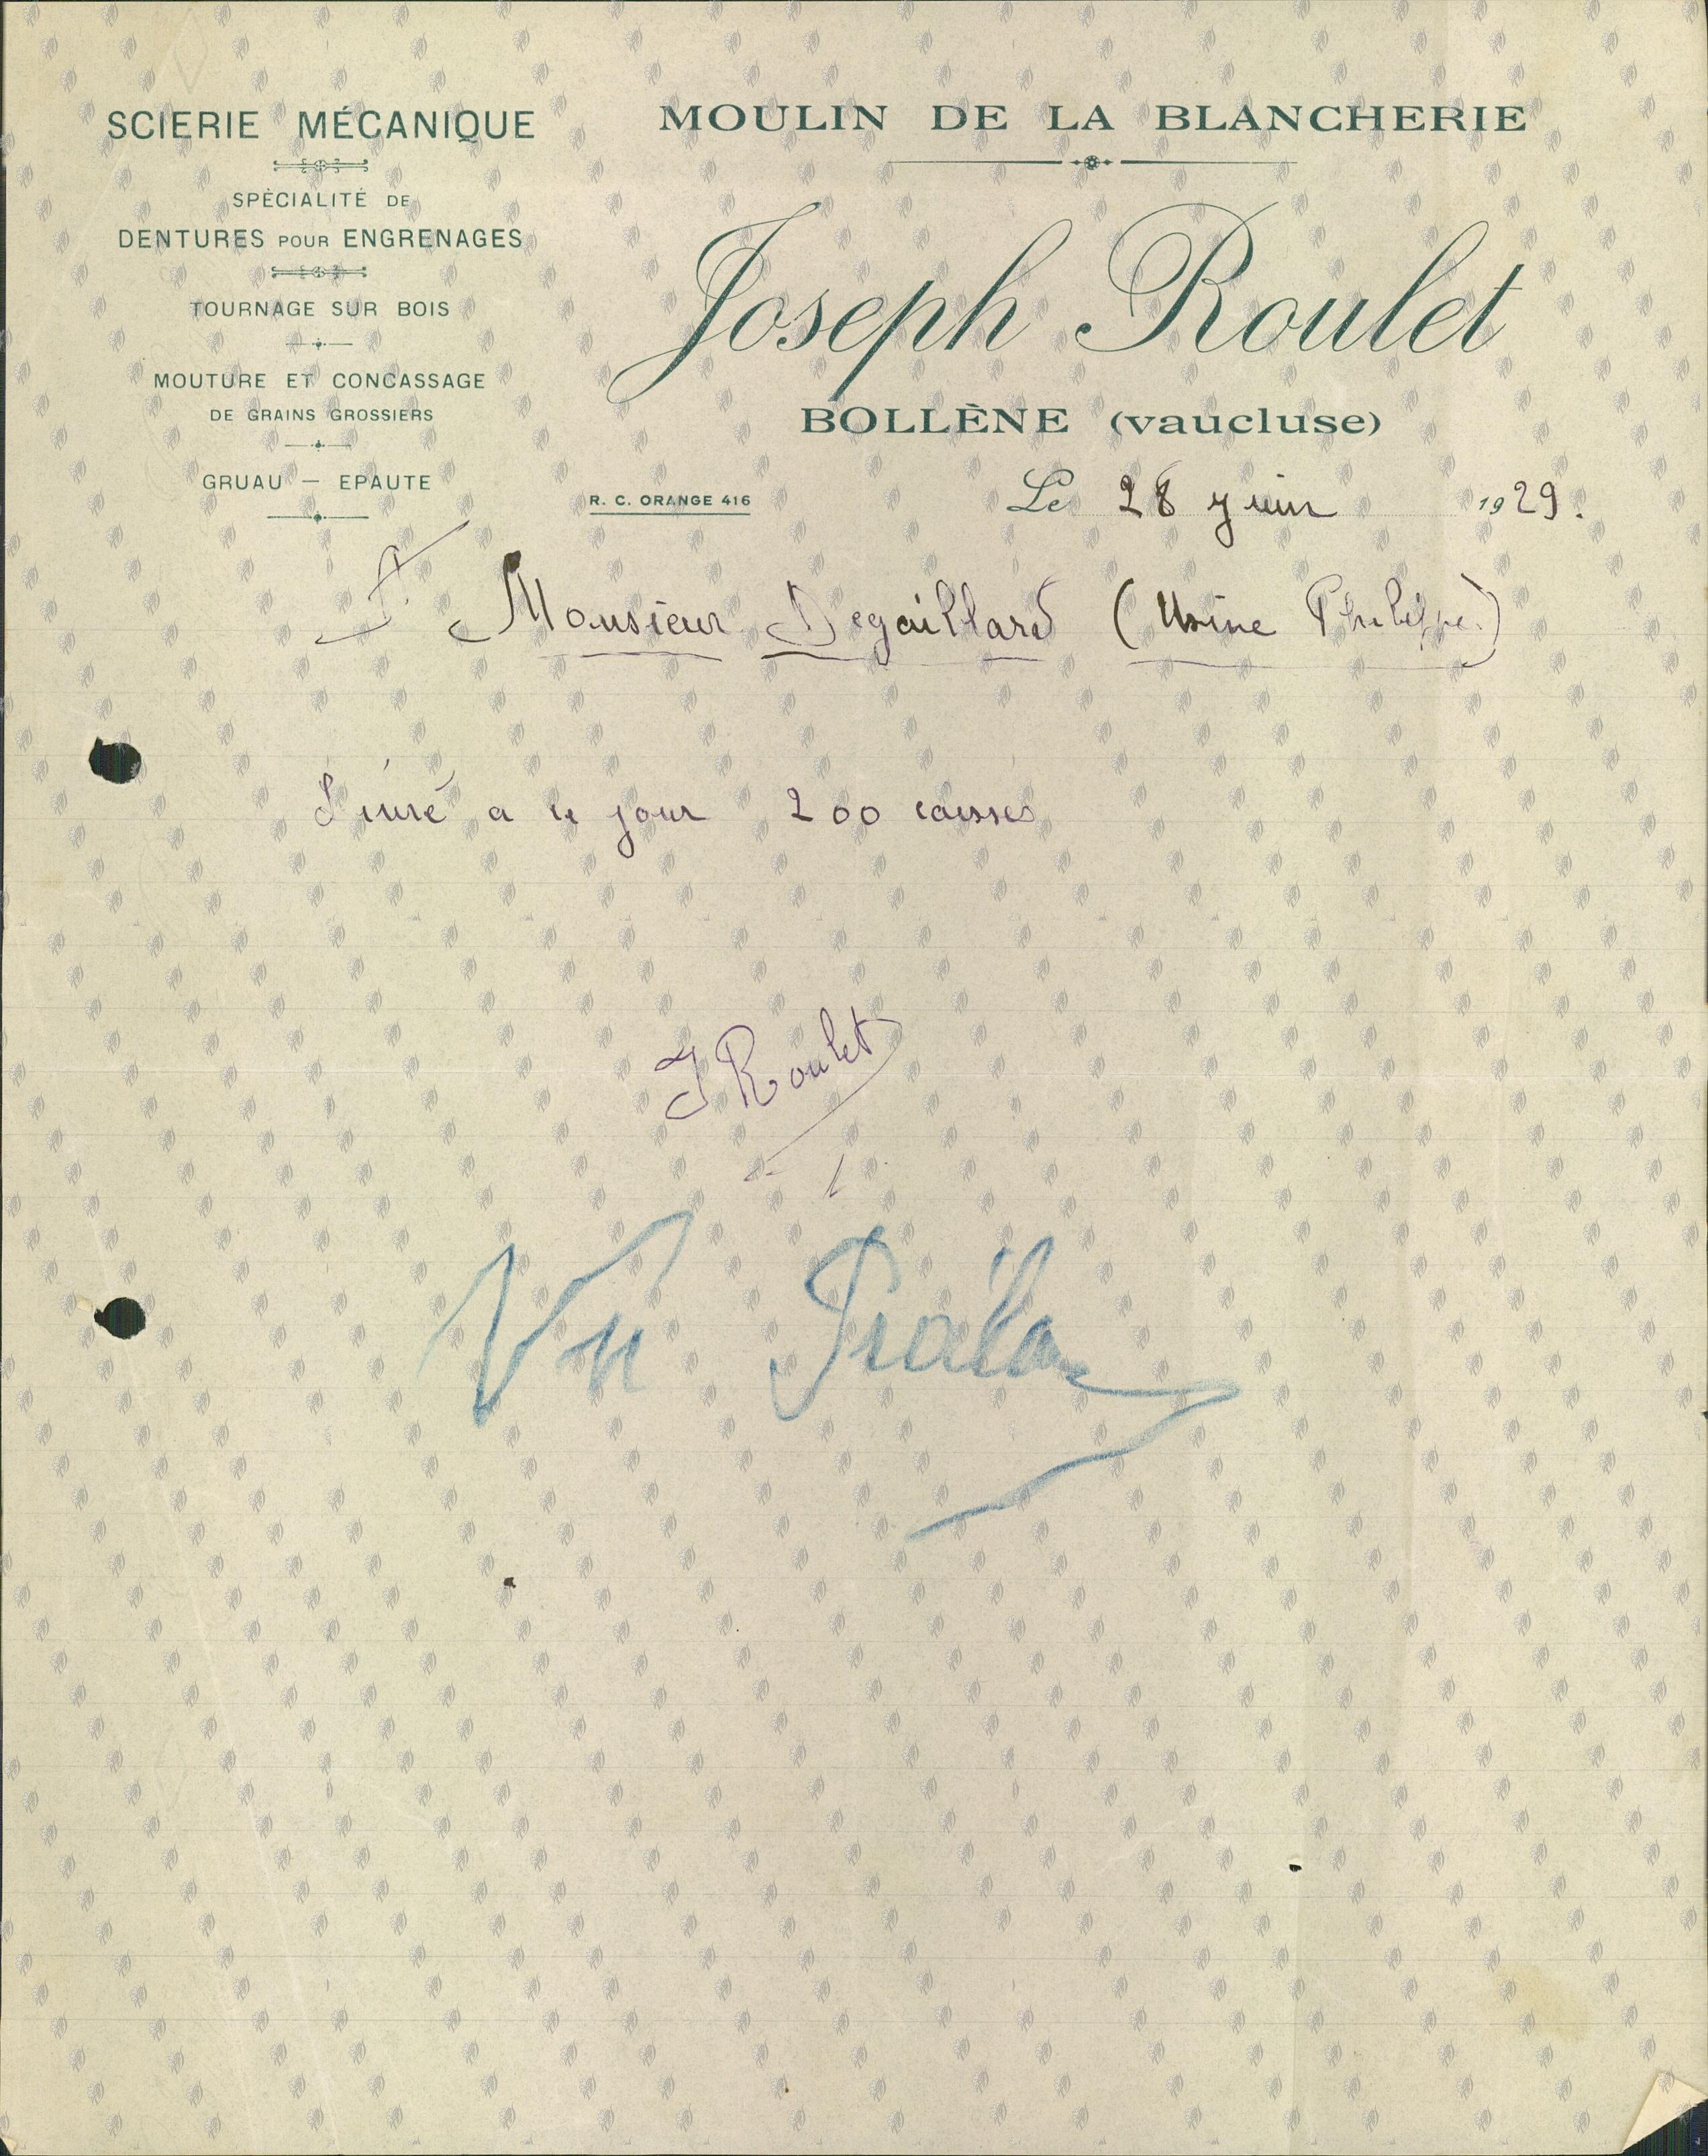 SCIERIE MÉCANIQUE
SPÉCIALITÉ DE
DENTURES POUR ENGRENAGES
TOURNAGE SUR BOIS
MOUTURE ET CONCASSAGE
DE GRAINS GROSSIERS
GRUAU — EPAUTE
MOULIN DE LA BLANCHERIE
Joseph Roulet
BOLLÈNE (vaucluse)
R. C. ORANGE 416
Le 28 juin 1929.
Monsieur Degaillard (Usine Philippe)
Livré a ce jour 200 caisses
J Roulet
Vu